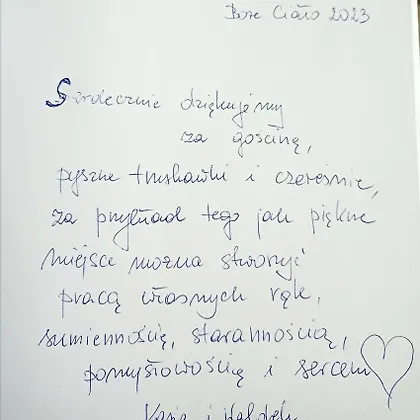 Boże Ciało 2023
Serdecznie dziękujemy
za gościnę,
pyszne truskawki i czereśnie,
za przykład tego jak piękne
miejsce można stworzyć
pracą własnych rąk,
sumiennością, starannością,
pomysłowością i sercem
i